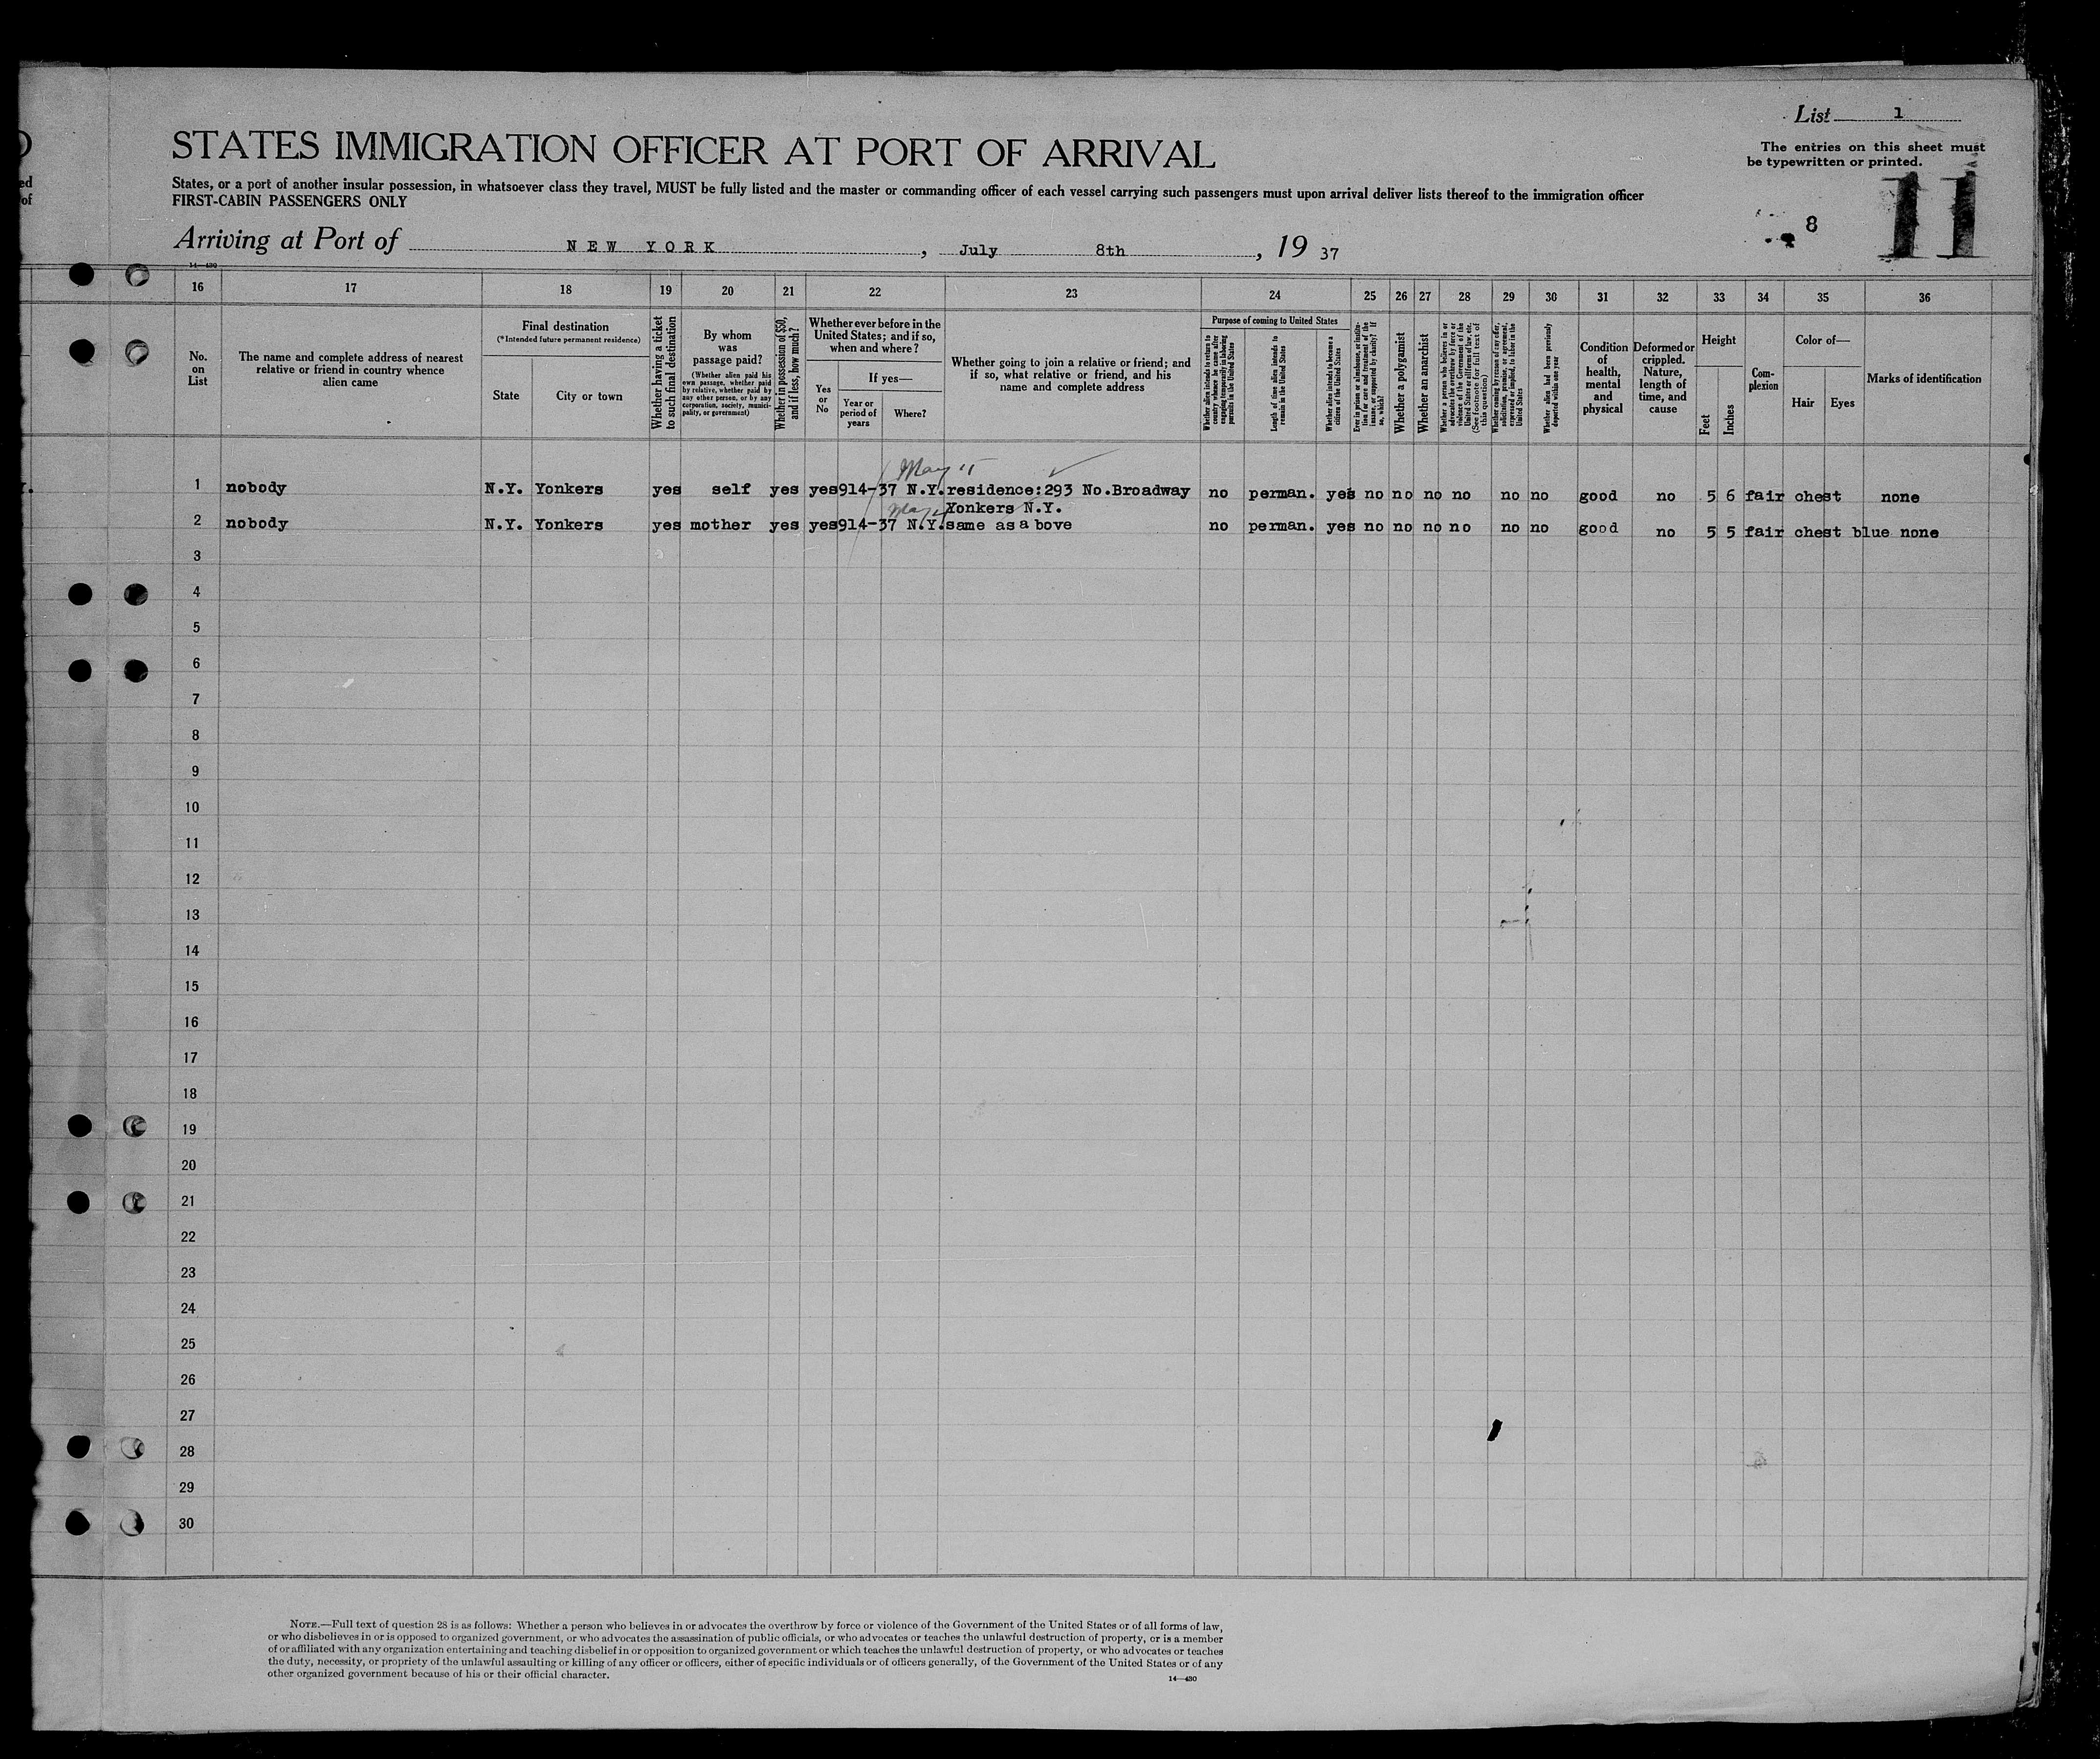 List 1
The entries on this sheet must
be typewritten or printed.
STATES IMMIGRATION OFFICER AT PORT OF ARRIVAL
ed
of
States, or a port of another insular possession, in whatsoever class they travel, MUST be fully listed and the master or commanding officer of each vessel carrying such passengers must upon arrival deliver lists thereof to the immigration officer
FIRST-CABIN PASSENGERS ONLY
8 11
Arriving at Port of NEW YORK, July 8th, 19 37
14—430
16 17 18 19 20 21 22 23 24 25 26 27 28 29 30 31 32 33 34 35 36
No. on List
The name and complete address of nearest relative or friend in country whence alien came
Final destination
(*Intended future permanent residence)
State
City or town
Whether having a ticket to such final destination
By whom was passage paid?
(Whether alien paid his own passage, whether paid by relative, whether paid by any other person, or by any corporation, society, municipality, or government)
Whether in possession of $50, and if less, how much?
Whether ever before in the United States; and if so, when and where?
Yes or No
If yes—
Year or period of years
Where?
Whether going to join a relative or friend; and if so, what relative or friend, and his name and complete address
Purpose of coming to United States
Whether alien intends to return to country whence he came after engaging temporarily in laboring pursuits in the United States
Length of time alien intends to remain in the United States
Whether alien intends to become a citizen of the United States
Ever in prison or almshouse, or institution for care and treatment of the insane, or supported by charity? If so, which?
Whether a polygamist
Whether an anarchist
Whether a person who believes in or advocates the overthrow by force or violence of the Government of the United States or all forms of law, etc. (See footnote for full text of this question)
Whether coming by reason of any offer, solicitation, promise, or agreement, expressed or implied, to labor in the United States
Whether alien had been previously deported within one year
Condition of health, mental and physical
Deformed or crippled. Nature, length of time, and cause
Height
Feet
Inches
Complexion
Color of—
Hair
Eyes
Marks of identification
May 11
1 nobody N.Y. Yonkers yes self yes yes 914-37 N.Y. residence:293 No.Broadway no perman. yes no no no no no no good no 5 6 fair chest none
May Yonkers N.Y.
2 nobody N.Y. Yonkers yes mother yes yes 914-37 N.Y. same as above no perman. yes no no no no no no good no 5 5 fair chest blue none
3
4
5
6
7
8
9
10
11
12
13
14
15
16
17
18
19
20
21
22
23
24
25
26
27
28
29
30
NOTE.—Full text of question 28 is as follows: Whether a person who believes in or advocates the overthrow by force or violence of the Government of the United States or of all forms of law,
or who disbelieves in or is opposed to organized government, or who advocates the assassination of public officials, or who advocates or teaches the unlawful destruction of property, or is a member
of or affiliated with any organization entertaining and teaching disbelief in or opposition to organized government or which teaches the unlawful destruction of property, or who advocates or teaches
the duty, necessity, or propriety of the unlawful assaulting or killing of any officer or officers, either of specific individuals or of officers generally, of the Government of the United States or of any
other organized government because of his or their official character.
14—430